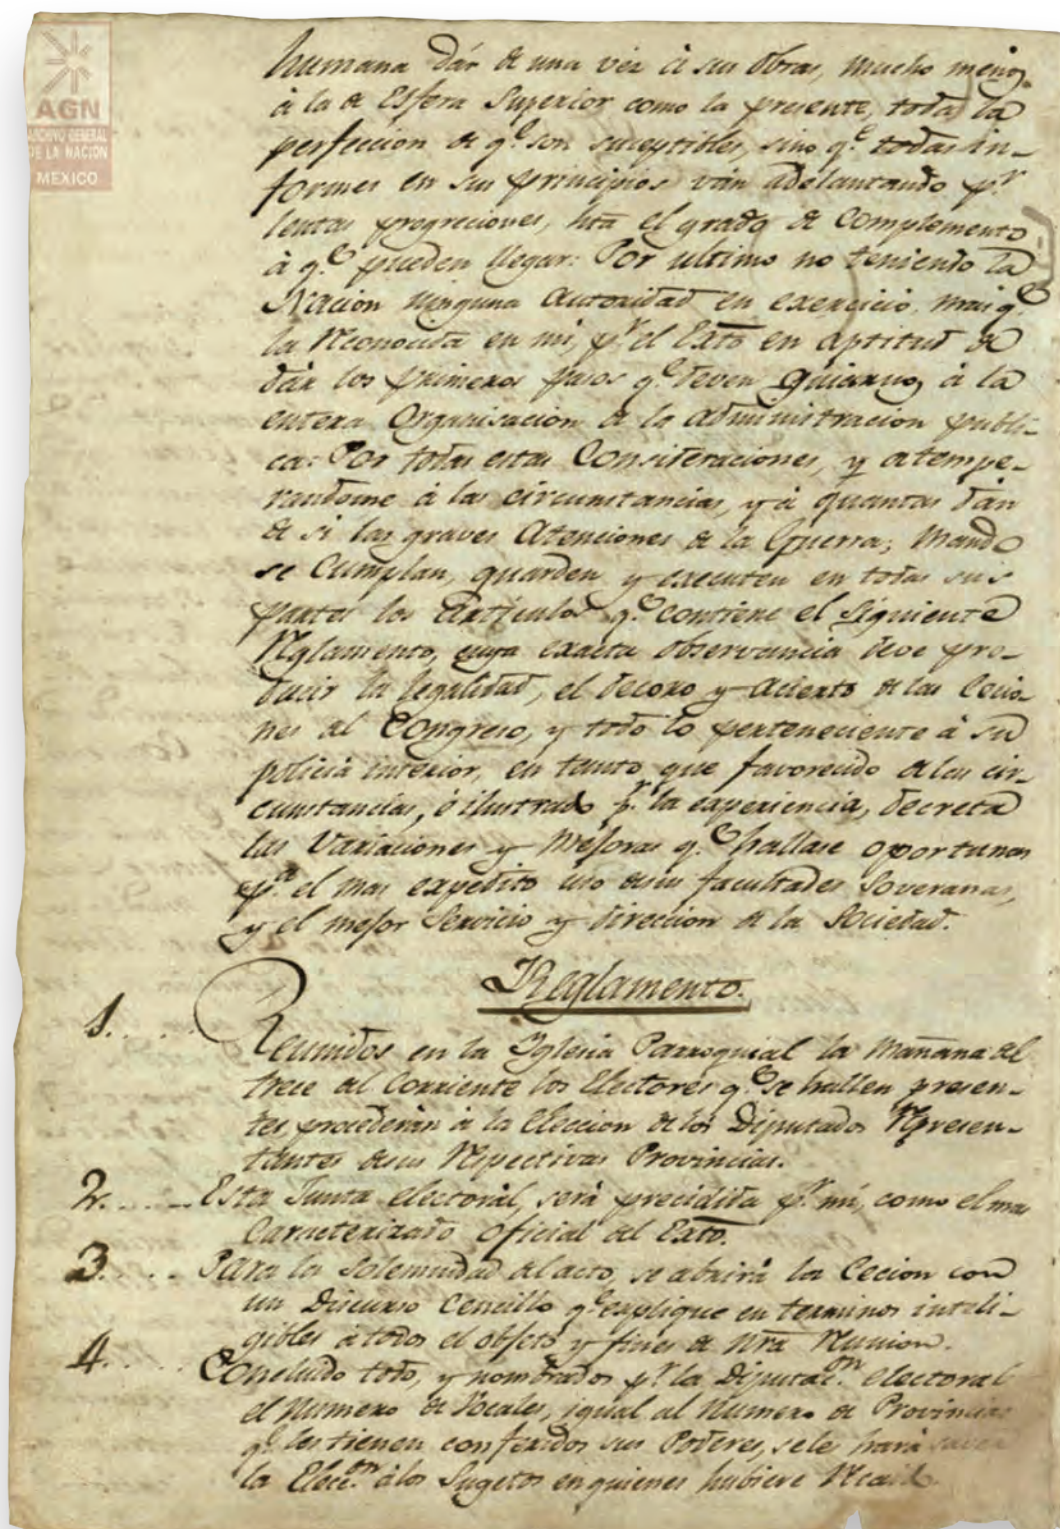 AGN
ARCHIVO GENERAL
DE LA NACION
MEXICO
humana dár de una véz á sus obras, mucho menos
á la de Esfera Superior como la presente, toda la
perfeccion de q.e son suceptibles, sino q.e todas in-
formes en sus principios ván adelantando p.r
lentas progreciones, hta el grado de Complemento
á q.e pueden llegar: Por ultimo no teniendo la
Nacion ninguna autoridad en exercicio, mas q.e
la reconocida en mi, p.r el Exto en aptitud de
dár los primeros pasos q.e deven guiarnos á la
entera Organisacion de la administracion publi-
ca: Por todas estas Consideraciones, y atempe-
randome á las circunstancias, y á quantas dán
de si las graves Atenciones de la Guerra; Mando
se Cumplan, guarden y executen en todas sus
partes los Artículos q.e contiene el Siguiente
Reglamento, cuya exacta observancia deve pro-
ducir la legalidad, el decoro y acierto de las Cecio-
nes del Congreso, y todo lo perteneciente á su
policia interior, en tanto que favorecido de las cir-
cunstancias, ó ilustrado p.r la experiencia, decreta
las Variaciones y Mejoras q.e hallare oportunas
p.a el mas expedito uso de sus facultades Soveranas,
y el mejor Servicio y direccion de la Sociedad.
Reglamento.
1..... Reunidos en la Yglesia Parroquial la mañana del
trece del Corriente los Electores q.e se hallen presen-
tes procederán á la Eleccion de los Diputados Represen-
tantes de sus Respectivas Provincias.
2..... Esta Junta electoral, será precidida p.r mi, como el mas
Caracterizado oficial del Exto.
3..... Para la solemnidad del acto, se abrirá la Cecion con
un Discurso Cencillo q.e explique en terminos inteli-
gibles á todos el objeto y fines de nra Reunion.
4..... Concluido todo, y nombrados p.r la Diputac.on electoral
el Numero de Vocales, igual al Numero de Provincias
q.e les tienen conferidos sus Poderes, se le hará saver
la Elecc.on á los Sugetos en quienes hubiere Recaido.